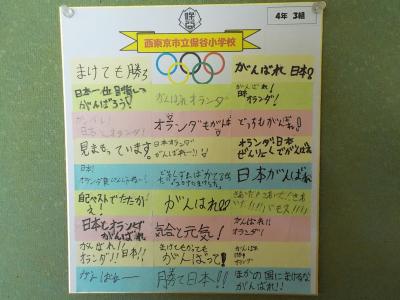 保谷
4年 3組
西東京市立保谷小学校
まけても勝ろ
がんばれ 日本!!
日本一位目指して
がんばろう!
がんばれ オランダ
がんばれ!
日本
オランダ!
ガンバレ!
日本とオランダ!
オランダもがんば
どっちもがんばれ!
見まもっています。
日本オランダ
がんばれー!!
オランダ日本
ぜんりょくでがんばれ
日本!
日本がんばれ
自己ベストでたたかえ!
がんばれ!!
日本とオランダ
がんばれ
気合と元気!
がんばれ!!
オランダ!
がんばれ!!
オランダ!! 日本!!
まけてもかっても
がんばって!!
がんばれ
日本
オランダ
がんばれー
勝て日本!!
ほかの国にまけるな
がんばれ!!